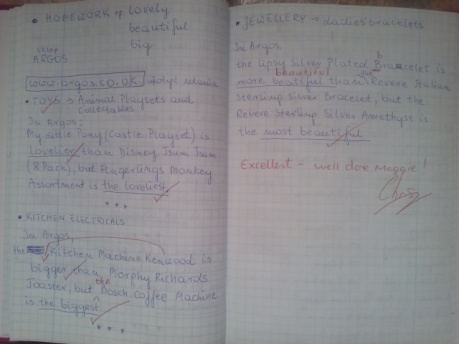 • HOMEWORK → lovely
beautiful
big
sklep
ARGOS
www.argos.co.uk
• TOYS → Animal Playsets and
Collectables
In Argos:
My Little Pony (Castle Playset) is
lovelier than Disney Tsum Tsum
(8 Pack), but Fingerlings Monkey
Assortment is the loveliest.
• KITCHEN ELECTRICALS
In Argos,
the Kitchen Machine Kenwood is
bigger than Morphy Richards
Toaster, but the Bosch Coffee Machine
is the biggest.
• JEWELLERY → Ladies' bracelets
In Argos
the Lipsy Silver Plated Bracelet is
beautiful
more beatiful than Revere Italian
Sterling Silver Bracelet, but the
Revere Sterling Silver Amethyst is
the most beautiful
Excellent - well done Maggie!